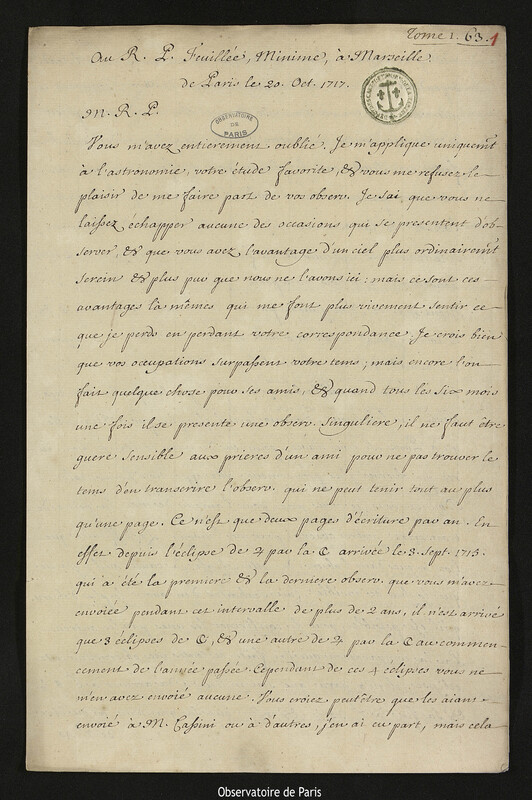 Tome 1. 63. 1
Au R. P. Feuillée, Minime, à Marseille.
de Paris le 20. Oct. 1717.
OBSERVATOIRE
DE
PARIS
M. R. P.
Vous m'avez entierement oublié. Je m'applique uniquem̄t
à l'astronomie, votre étude favorite, & vous me refusez le
plaisir de me faire part de vos observ. Je sai que vous ne
laissez échapper aucune des occasions qui se presentent d'ob-
server, & que vous avez l'avantage d'un ciel plus ordinairem̄t
serein & plus pur que nous ne l'avons ici : mais ce sont ces
avantages là mêmes qui me font plus vivement sentir ce
que je perds en perdant votre correspondance. Je crois bien
que vos occupations surpassent votre tems ; mais encore l'on
fait quelque chose pour ses amis, & quand tous les six mois
une fois il se presente une observ. singuliere, il ne faut être
guere sensible aux prieres d'un ami pour ne pas trouver le
tems d'en transcrire l'observ. qui ne peut tenir tout au plus
qu'une page. Ce n'est que deux pages d'écriture par an. En
effet depuis l'éclipse de ♃ par la ☾ arrivée le 3. Sept. 1715.
qui à été la premiere & la derniere observ. que vous m'avez
envoiée pendant cet intervalle de plus de 2 ans, il n'est arrivé
que 3 éclipses de ☾, & une autre de ♃ par la ☾ au commen-
cement de l'année passée. Cependant de ces 4 éclipses vous ne
m'en avez envoié aucune. Vous croiez peutêtre que les aiant
envoié à M. Cassini ou à d'autres, j'en ai eu part, mais cela
Observatoire de Paris